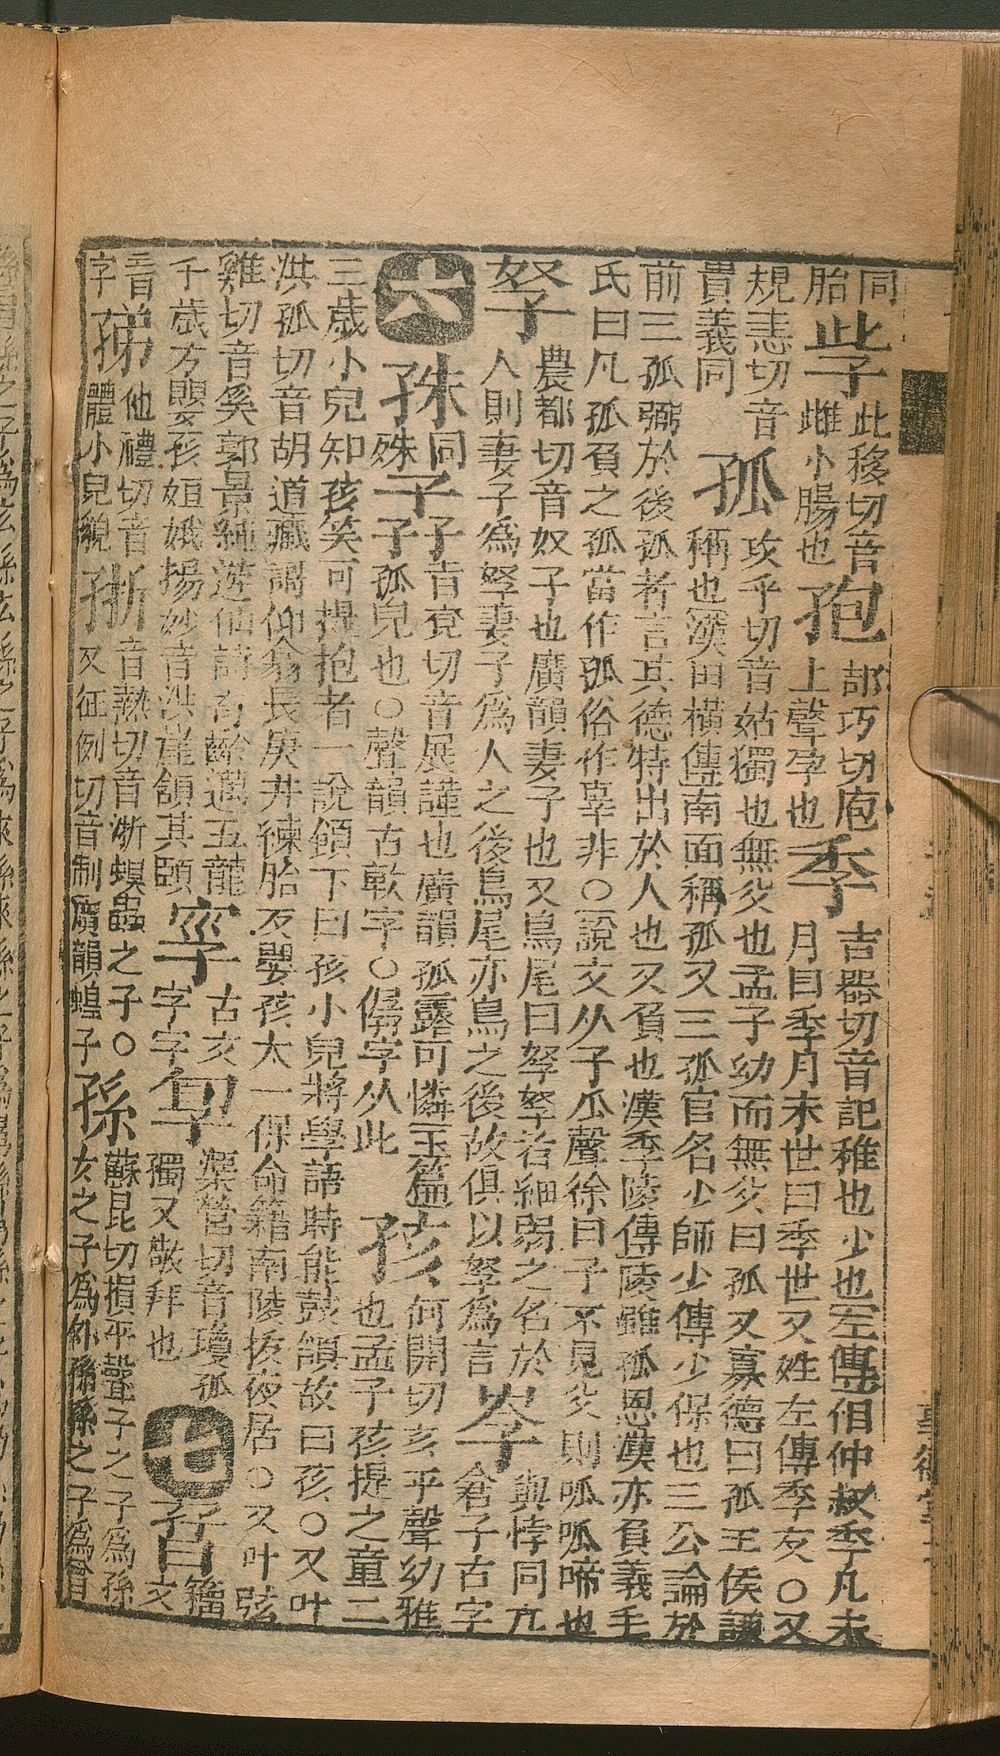 同
胎
㧗
此移切音
雌小腸也
孢
部巧切庖
上聲孕也
季
吉器切音記稚也少也左傳伯仲叔季凡末
月曰季月末世曰季世又姓左傳季友○又
規恚切音
貫義同
孤
攻乎切音姑獨也無父也孟子幼而無父曰孤又寡德曰孤王侯謙
稱也漢田橫傳南面稱孤又三孤官名少師少傅少保也三公論於
前三孤弼於後孤者言其德特出於人也又負也漢季陵傳陵雖孤恩漢亦負義毛
氏曰凡孤負之孤當作孤俗作辜非○說文从子瓜聲徐曰子不見父則呱呱啼也
孥
農都切音奴子也廣韻妻子也又鳥尾曰孥孥者細弱之名於
人則妻子為孥妻子為人之後鳥尾亦鳥之後故俱以孥為言
㝒
與悖同亢
倉子古字
六
㚴
同
殊
孨
子音兗切音展謹也廣韻孤露可憐玉篇
子孤兒也○聲韻古㪍字○孱字从此
孩
何開切亥平聲幼稚
也孟子孩提之童二
三歲小兒知孩笑可提抱者一說頷下曰孩小兒將學語時能鼓頷故曰孩○又叶
洪孤切音胡道藏謁仰翁長庚井練胎反嬰孩太一保命籍南陵扳夜居○又叶弦
雞切音奚郭景純遊仙詩奇齡邁五龍
千歲方嬰孩姮娥揚妙音洪崖頷其頤
㝈
古文
字字
㝁
渠營切音瓊孤
獨又敬拜也
七
㜽
籀
文
晉
字
㣢
他禮切音
體小兒貌
㪿
音熱切音浙螟蟲之子○
又征例切音制廣韻蝗子
孫
蘇昆切損平聲子之子為孫
女之子為外孫孫之子為曾